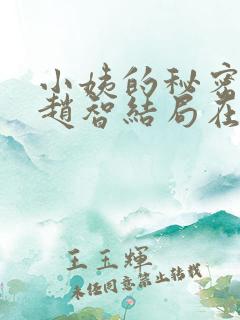 小姨的秘密
趙智結局在
王玉輝
未经同意禁止转载